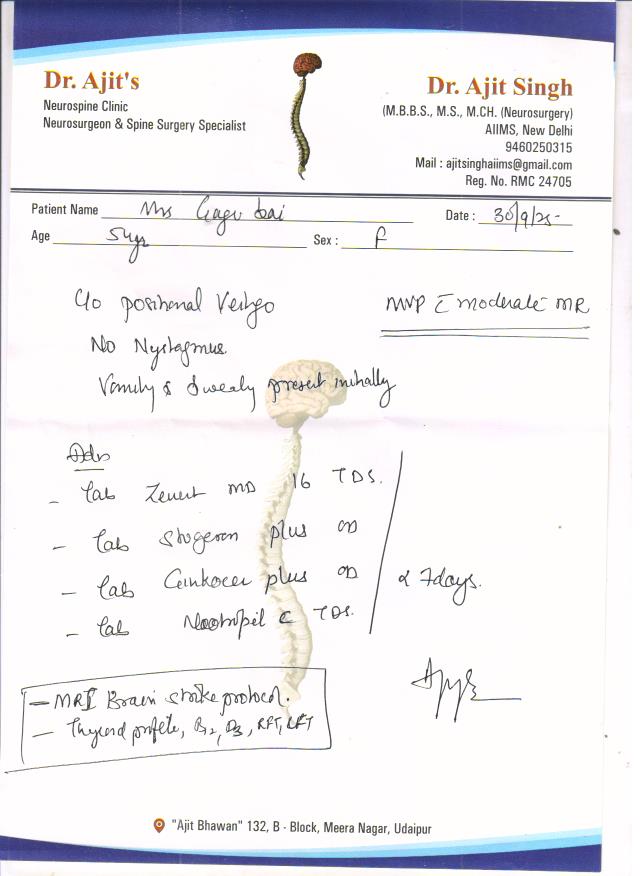 Dr. Ajit's
Neurospine Clinic
Neurosurgeon & Spine Surgery Specialist
Dr. Ajit Singh
(M.B.B.S., M.S., M.CH. (Neurosurgery)
AIIMS, New Delhi
9460250315
Mail : ajitsinghaiims@gmail.com
Reg. No. RMC 24705
Patient Name Mrs bai Date : 30/9/25
Age 54yr Sex : F
C/o positional Vertigo
MVP c̄ moderate MR
No Nystagmus
Vomity & Sweaty present initially
Adv
- Tab MD 16 TDS.
- Tab Stugeron plus OD
- Tab Ginkocer plus OD
- Tab Nootropil TDS.
x 7days.
- MRI Brain stroke protocol.
- Thyroid profile, B12, D3, RFT, LFT
"Ajit Bhawan" 132, B - Block, Meera Nagar, Udaipur